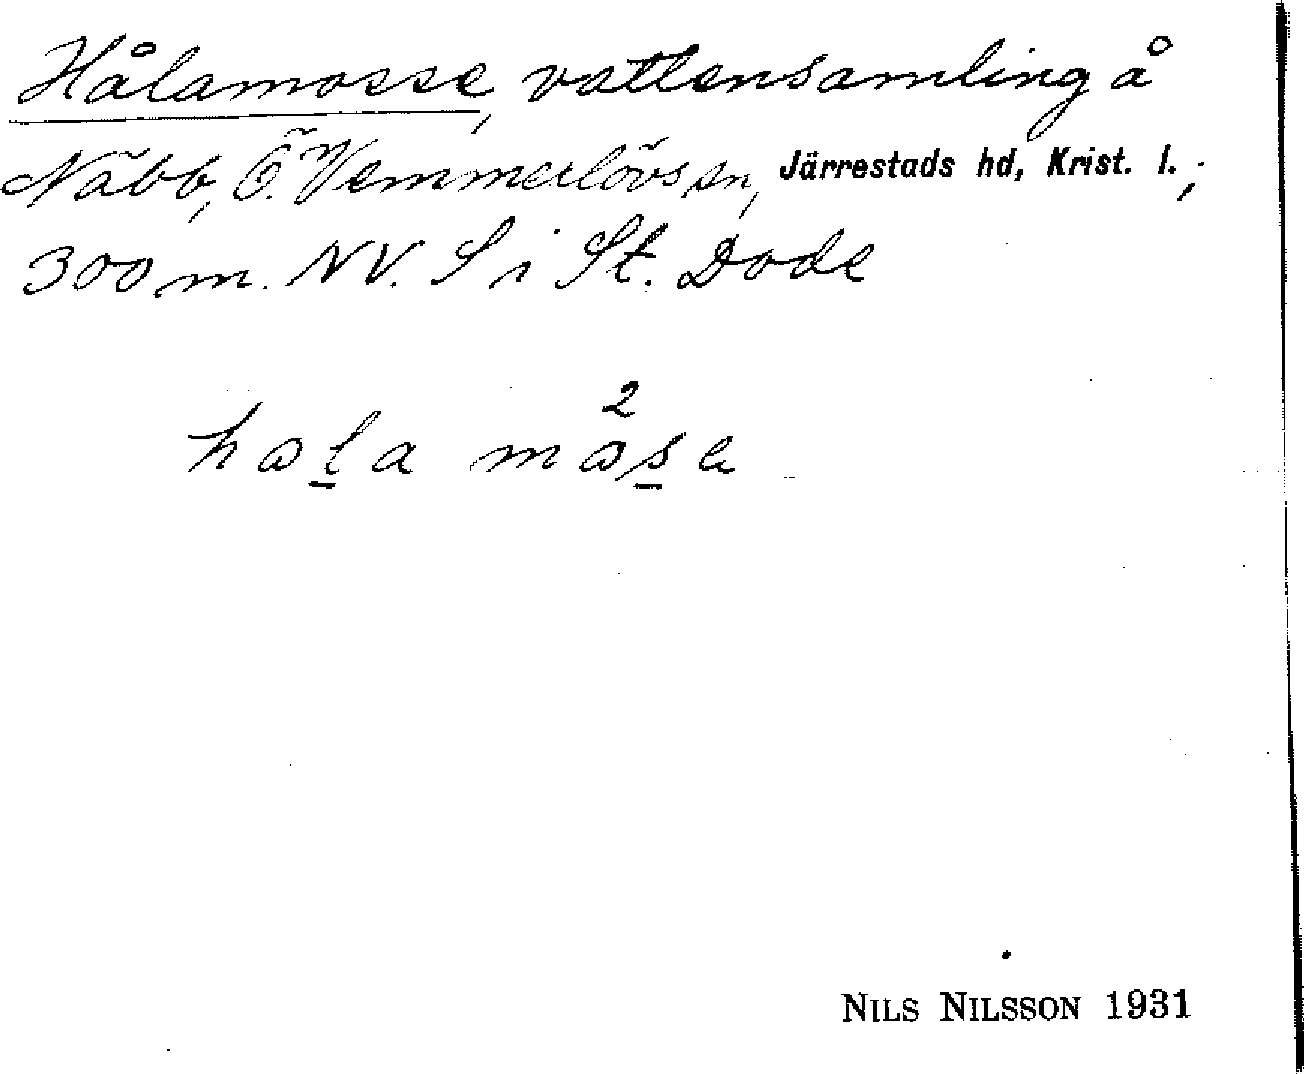 Hålamosse, vattensamling å
Näbb, Ö. Vemmerlövs sn, Järrestads hd, Krist. l.,
300 m. NV. S i St. Dode
hala måse
NILS NILSSON 1931